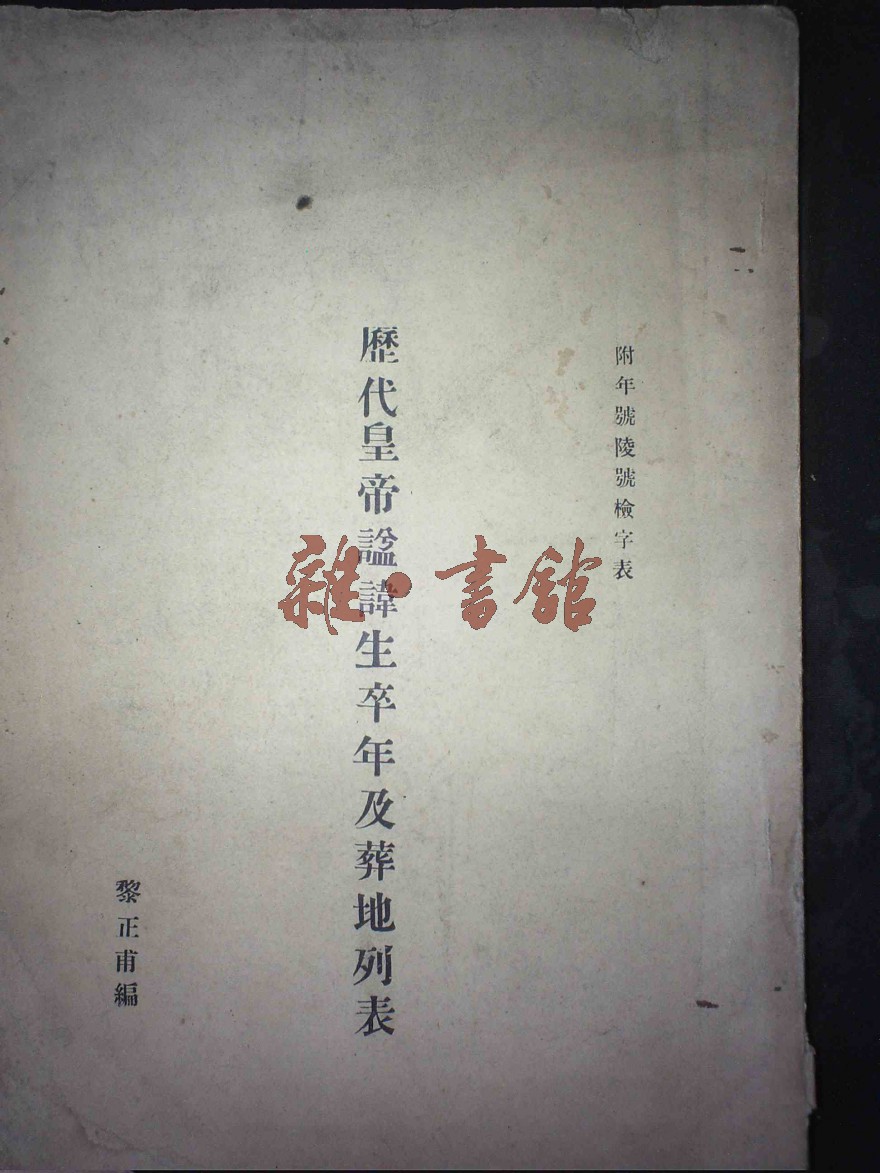 附年號陵號檢字表
歷代皇帝諡諱生卒年及葬地列表
黎正甫編
雜·書館